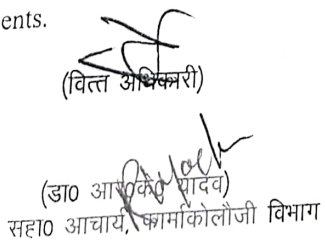 ents.
(वित्त अधिकारी)
(डा० आर०के० यादव)
सहा० आचार्य, फार्माकोलौजी विभाग